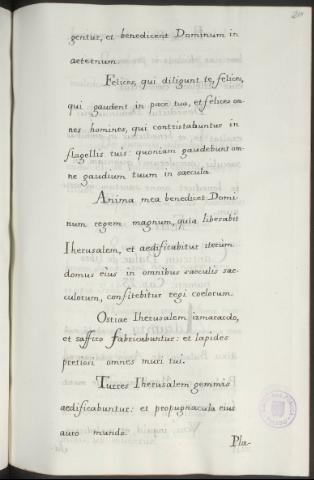 gentur, et benedicent Dominum in
aeternum.
Felices, qui diligunt te, felices,
qui gaudent in pace tua, et felices om-
nes homines, qui contristabuntur in
flagellis tuis: quoniam gaudebunt om-
ne gaudium tuum in saecula.
Anima mea benedicet Domi-
num regem magnum, quia liberabit
Iherusalem, et aedificabitur iterum
domus eius in omnibus saeculis sae-
culorum, confitebitur regi coelorum.
Ostiae Iherusalem izmaracdo,
et saffiro fabricabuntur: et lapides
pretiosi omnes muri tui.
Turres Iherusalem gemmis
aedificabuntur: et propugnacula eius
auro mundo.
Pla-